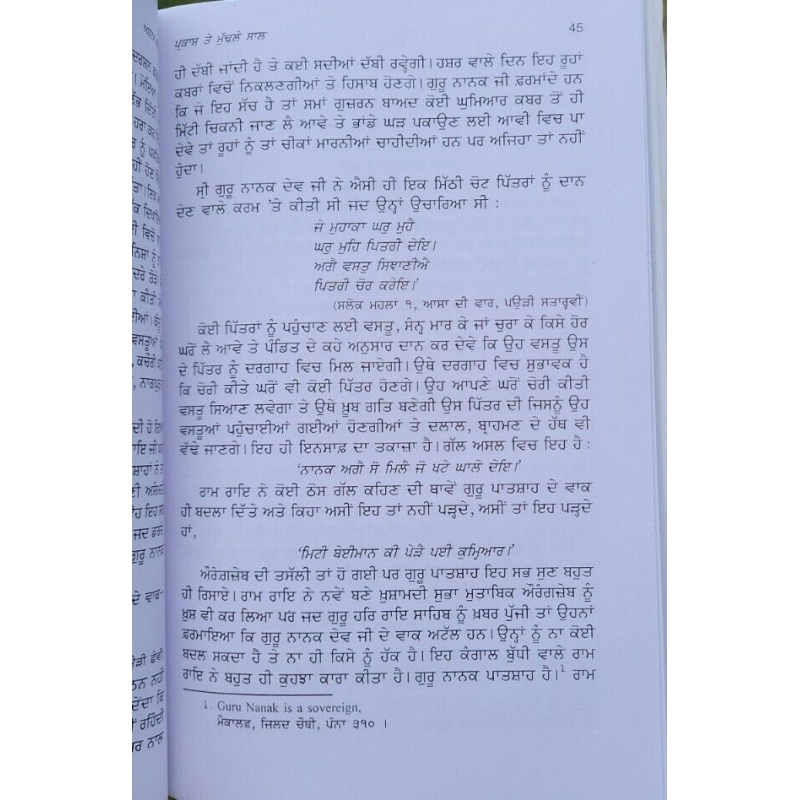 ਪ੍ਰਕਾਸ਼ ਤੇ ਮੁੱਢਲੇ ਸਾਲ
45
ਹੀ ਦੱਬੀ ਜਾਂਦੀ ਹੈ ਤੇ ਕਈ ਸਦੀਆਂ ਦੱਬੀ ਰਵ੍ਹੇਗੀ। ਹਸ਼ਰ ਵਾਲੇ ਦਿਨ ਇਹ ਰੂਹਾਂ
ਕਬਰਾਂ ਵਿਚੋਂ ਨਿਕਲਣਗੀਆਂ ਤੇ ਹਿਸਾਬ ਹੋਣਗੇ। ਗੁਰੂ ਨਾਨਕ ਜੀ ਫ਼ਰਮਾਂਦੇ ਹਨ
ਕਿ ਜੇ ਇਹ ਸੱਚ ਹੈ ਤਾਂ ਸਮਾਂ ਗੁਜ਼ਰਨ ਬਾਅਦ ਕੋਈ ਘੁਮਿਆਰ ਕਬਰ ਤੋਂ ਹੀ
ਮਿੱਟੀ ਚਿਕਨੀ ਜਾਣ ਲੈ ਆਵੇ ਤੇ ਭਾਂਡੇ ਘੜ ਪਕਾਉਣ ਲਈ ਆਵੀ ਵਿਚ ਪਾ
ਦੇਵੇ ਤਾਂ ਰੂਹਾਂ ਨੂੰ ਤਾਂ ਚੀਕਾਂ ਮਾਰਨੀਆਂ ਚਾਹੀਦੀਆਂ ਹਨ ਪਰ ਅਜਿਹਾ ਤਾਂ ਨਹੀਂ
ਹੁੰਦਾ।
ਸ੍ਰੀ ਗੁਰੂ ਨਾਨਕ ਦੇਵ ਜੀ ਨੇ ਐਸੀ ਹੀ ਇਕ ਮਿੱਠੀ ਚੋਟ ਪਿੱਤਰਾਂ ਨੂੰ ਦਾਨ
ਦੇਣ ਵਾਲੇ ਕਰਮ 'ਤੇ ਕੀਤੀ ਸੀ ਜਦ ਉਨ੍ਹਾਂ ਉਚਾਰਿਆ ਸੀ :
ਜੇ ਮੁਹਾਕਾ ਘਰੁ ਮੁਹੈ
ਘਰੁ ਮੁਹਿ ਪਿਤਰੀ ਦੇਇ।
ਅਗੈ ਵਸਤੁ ਸਿਞਾਣੀਐ
ਪਿਤਰੀ ਚੋਰ ਕਰੇਇ।'
(ਸਲੋਕ ਮਹਲਾ ੧, ਆਸਾ ਦੀ ਵਾਰ, ਪਉੜੀ ਸਤਾਰ੍ਹਵੀਂ)
ਕੋਈ ਪਿੱਤਰਾਂ ਨੂੰ ਪਹੁੰਚਾਣ ਲਈ ਵਸਤੂ, ਸੰਨ੍ਹ ਮਾਰ ਕੇ ਜਾਂ ਚੁਰਾ ਕੇ ਕਿਸੇ ਹੋਰ
ਘਰੋਂ ਲੈ ਆਵੇ ਤੇ ਪੰਡਿਤ ਦੇ ਕਹੇ ਅਨੁਸਾਰ ਦਾਨ ਕਰ ਦੇਵੇ ਕਿ ਉਹ ਵਸਤੂ ਉਸ
ਦੇ ਪਿੱਤਰ ਨੂੰ ਦਰਗਾਹ ਵਿਚ ਮਿਲ ਜਾਏਗੀ। ਉਥੇ ਦਰਗਾਹ ਵਿਚ ਸੁਭਾਵਕ ਹੈ
ਕਿ ਚੋਰੀ ਕੀਤੇ ਘਰੋਂ ਵੀ ਕੋਈ ਪਿੱਤਰ ਹੋਣਗੇ। ਉਹ ਆਪਣੇ ਘਰੋਂ ਚੋਰੀ ਕੀਤੀ
ਵਸਤੂ ਸਿਆਣ ਲਵੇਗਾ ਤੇ ਉਥੇ ਖ਼ੂਬ ਗਤਿ ਬਣੇਗੀ ਉਸ ਪਿੱਤਰ ਦੀ ਜਿਸਨੂੰ ਉਹ
ਵਸਤੂਆਂ ਪਹੁੰਚਾਈਆਂ ਗਈਆਂ ਹੋਣਗੀਆਂ ਤੇ ਦਲਾਲ, ਬ੍ਰਾਹਮਣ ਦੇ ਹੱਥ ਵੀ
ਵੱਢੇ ਜਾਣਗੇ। ਇਹ ਹੀ ਇਨਸਾਫ਼ ਦਾ ਤਕਾਜ਼ਾ ਹੈ। ਗੱਲ ਅਸਲ ਵਿਚ ਇਹ ਹੈ :
'ਨਾਨਕ ਅਗੈ ਸੋ ਮਿਲੈ ਜੋ ਖਟੇ ਘਾਲੇ ਦੇਇ।'
ਰਾਮ ਰਾਇ ਨੇ ਕੋਈ ਠੋਸ ਗੱਲ ਕਹਿਣ ਦੀ ਥਾਵੇਂ ਗੁਰੂ ਪਾਤਸ਼ਾਹ ਦੇ ਵਾਕ
ਹੀ ਬਦਲਾ ਦਿੱਤੇ ਅਤੇ ਕਿਹਾ ਅਸੀਂ ਇਹ ਤਾਂ ਨਹੀਂ ਪੜ੍ਹਦੇ, ਅਸੀਂ ਤਾਂ ਇਹ ਪੜ੍ਹਦੇ
ਹਾਂ,
'ਮਿਟੀ ਬੇਈਮਾਨ ਕੀ ਪੇੜੈ ਪਈ ਕੁਮ੍ਹਿਆਰ।'
ਔਰੰਗਜ਼ੇਬ ਦੀ ਤਸੱਲੀ ਤਾਂ ਹੋ ਗਈ ਪਰ ਗੁਰੂ ਪਾਤਸ਼ਾਹ ਇਹ ਸਭ ਸੁਣ ਬਹੁਤ
ਹੀ ਰਿਸਾਏ। ਰਾਮ ਰਾਇ ਨੇ ਨਵੇਂ ਬਣੇ ਖ਼ੁਸ਼ਾਮਦੀ ਸੁਭਾ ਮੁਤਾਬਿਕ ਔਰੰਗਜ਼ੇਬ ਨੂੰ
ਖ਼ੁਸ਼ ਵੀ ਕਰ ਲਿਆ ਪਰ ਜਦ ਗੁਰੂ ਹਰਿ ਰਾਇ ਸਾਹਿਬ ਨੂੰ ਖ਼ਬਰ ਪੁੱਜੀ ਤਾਂ ਉਹਨਾਂ
ਫ਼ਰਮਾਇਆ ਕਿ ਗੁਰੂ ਨਾਨਕ ਦੇਵ ਜੀ ਦੇ ਵਾਕ ਅਟੱਲ ਹਨ। ਉਨ੍ਹਾਂ ਨੂੰ ਨਾ ਕੋਈ
ਬਦਲ ਸਕਦਾ ਹੈ ਤੇ ਨਾ ਹੀ ਕਿਸੇ ਨੂੰ ਹੱਕ ਹੈ। ਇਹ ਕੰਗਾਲ ਬੁੱਧੀ ਵਾਲੇ ਰਾਮ
ਰਾਇ ਨੇ ਬਹੁਤ ਹੀ ਕੁਹਝਾ ਕਾਰਾ ਕੀਤਾ ਹੈ। ਗੁਰੂ ਨਾਨਕ ਪਾਤਸ਼ਾਹ ਹੈ।¹ ਰਾਮ
1. Guru Nanak is a sovereign,
ਮੈਕਾਲਫ਼, ਜਿਲਦ ਚੌਥੀ, ਪੰਨਾ ੩੧੦ ।